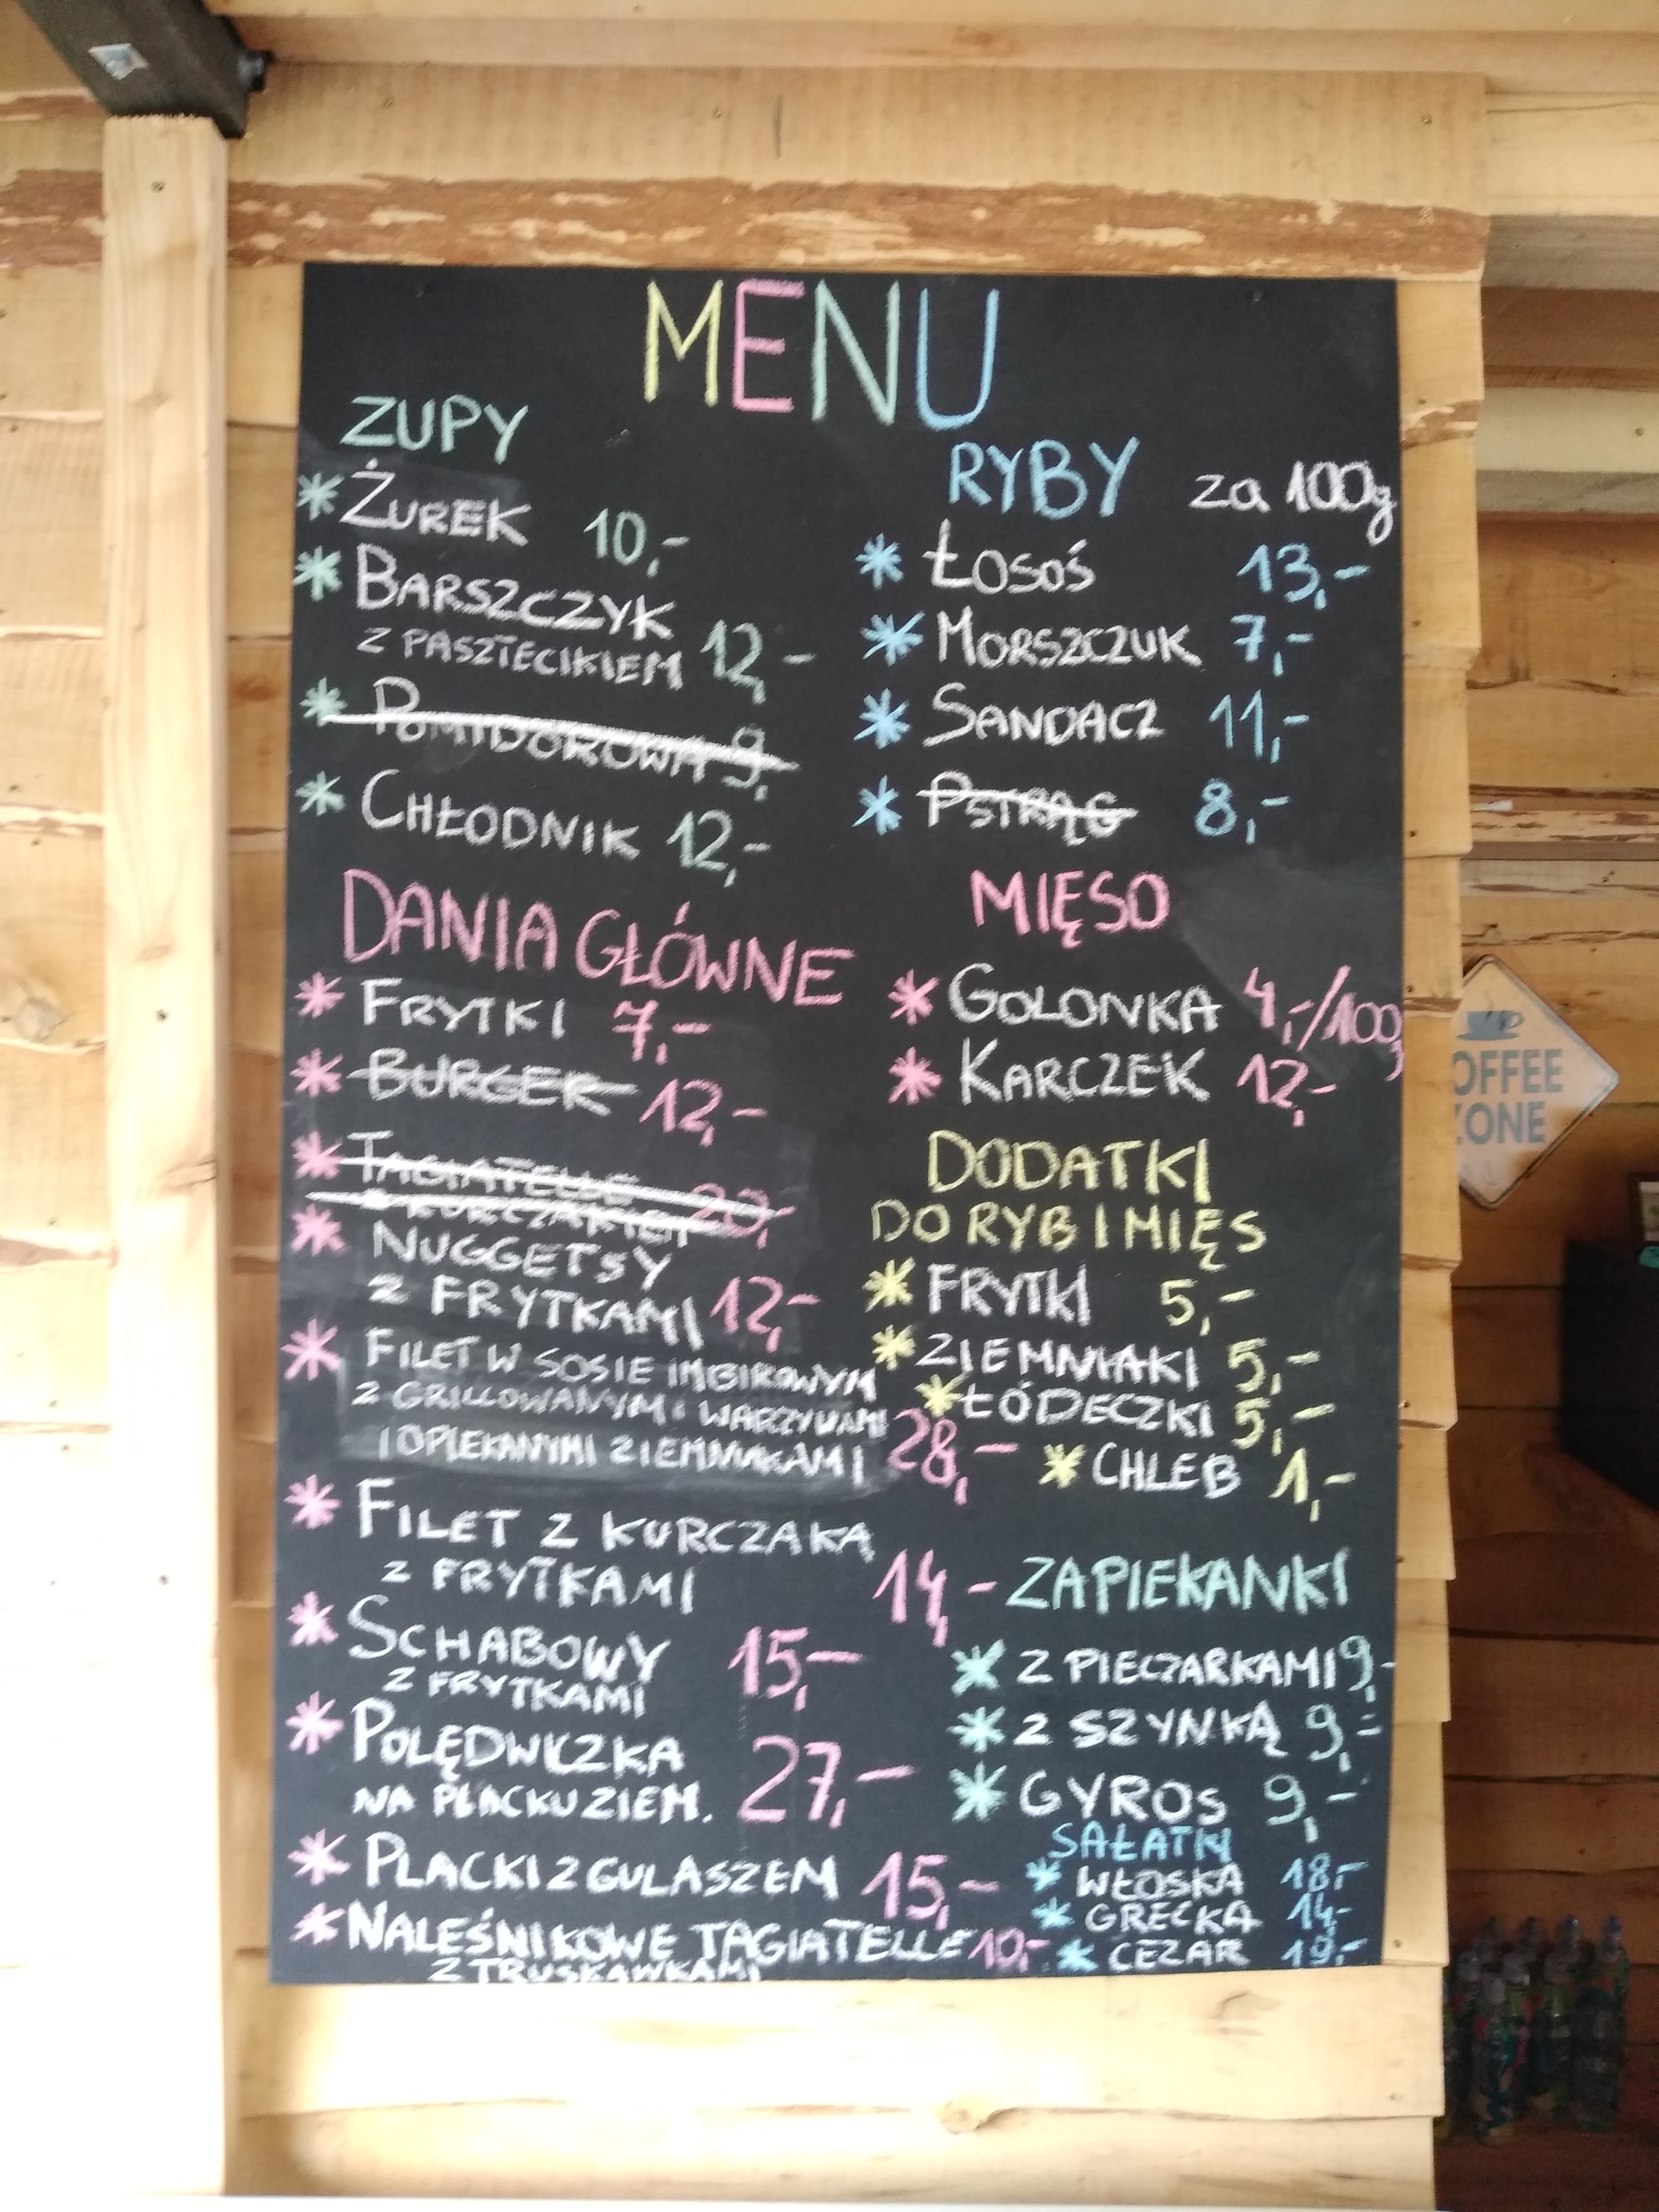 MENU
ZUPY
* ŻUREK 10,-
* BARSZCZYK
Z PASZTECIKIEM 12,-
* POMIDOROWA 9,
* CHŁODNIK 12,-
DANIA GŁÓWNE
* FRYTKI 7,-
* BURGER 12,-
* TAGIATELLE
Z KURCZAKIEM 20,-
* NUGGETSY
Z FRYTKAMI 12,-
* FILET W SOSIE IMBIROWYM
Z GRILLOWANYMI WARZYWAMI
I OPIEKANYMI ZIEMNIAKAMI 28,-
* FILET Z KURCZAKA
Z FRYTKAMI 14,-
* SCHABOWY 15,-
Z FRYTKAMI
* POLĘDWICZKA
NA PLACKU ZIEM. 27,-
* PLACKI Z GULASZEM 15,-
* NALEŚNIKOWE TAGIATELLE 10,-
Z TRUSKAWKAMI
RYBY za 100g
* ŁOSOŚ 13,-
* MORSZCZUK 7,-
* SANDACZ 11,-
* PSTRĄG 8,-
MIĘSO
* GOLONKA 4,-/100g
* KARCZEK 12,-
DODATKI
DO RYB I MIĘS
* FRYTKI 5,-
* ZIEMNIAKI 5,-
* ŁÓDECZKI 5,-
* CHLEB 1,-
ZAPIEKANKI
* Z PIECZARKAMI 9,-
* Z SZYNKĄ 9,-
* GYROS 9,-
SAŁATKI
* WŁOSKA 18,-
* GRECKA 14,-
* CEZAR 19,-
OFFEE
ZONE